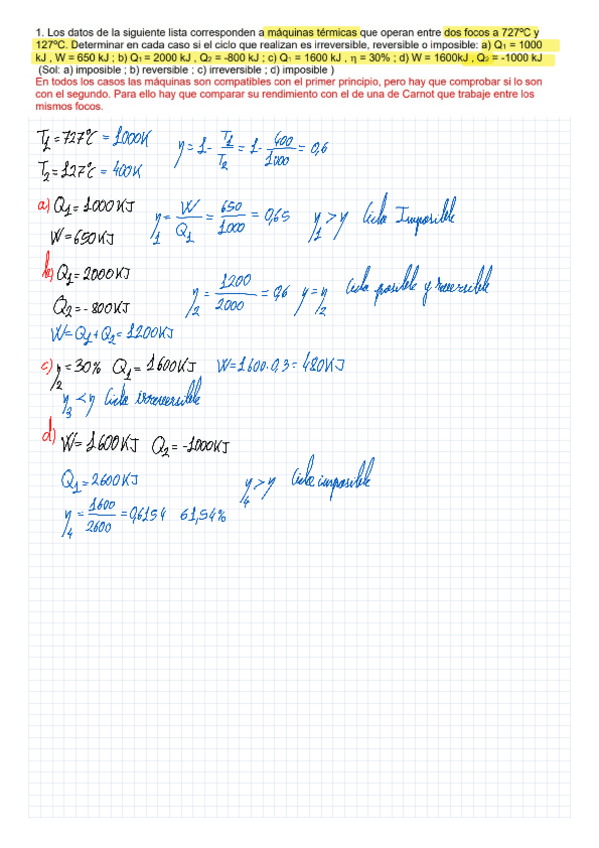 1. Los datos de la siguiente lista corresponden a máquinas térmicas que operan entre dos focos a 727ºC y
127ºC. Determinar en cada caso si el ciclo que realizan es irreversible, reversible o imposible: a) Q₁ = 1000
kJ , W = 650 kJ ; b) Q₁ = 2000 kJ , Q₂ = -800 kJ ; c) Q₁ = 1600 kJ , η = 30% ; d) W = 1600kJ , Q₂ = -1000 kJ
(Sol: a) imposible ; b) reversible ; c) irreversible ; d) imposible )
En todos los casos las máquinas son compatibles con el primer principio, pero hay que comprobar si lo son
con el segundo. Para ello hay que comparar su rendimiento con el de una de Carnot que trabaje entre los
mismos focos.
T₁ = 727ºC = 1000K η = 1 - T₁/T₂ = 1 - 400/1000 = 0,6
T₂ = 127ºC = 400K
a) Q₁ = 1000 KJ η₁ = W/Q₁ = 650/1000 = 0,65 η₁ > η Ciclo Imposible
W = 650 KJ
b) Q₁ = 2000 KJ η₂ = 1200/2000 = 0,6 η = η₂ Ciclo posible y reversible
Q₂ = - 800 KJ
W = Q₁ + Q₂ = 1200 KJ
c) η₂ = 30% Q₁ = 1600 KJ W = 1600·0,3 = 480 KJ
η₃ < η Ciclo irreversible
d) W = 1600 KJ Q₂ = -1000 KJ
Q₁ = 2600 KJ η₄ > η Ciclo imposible
η₄ = 1600/2600 = 0,6154 61,54%